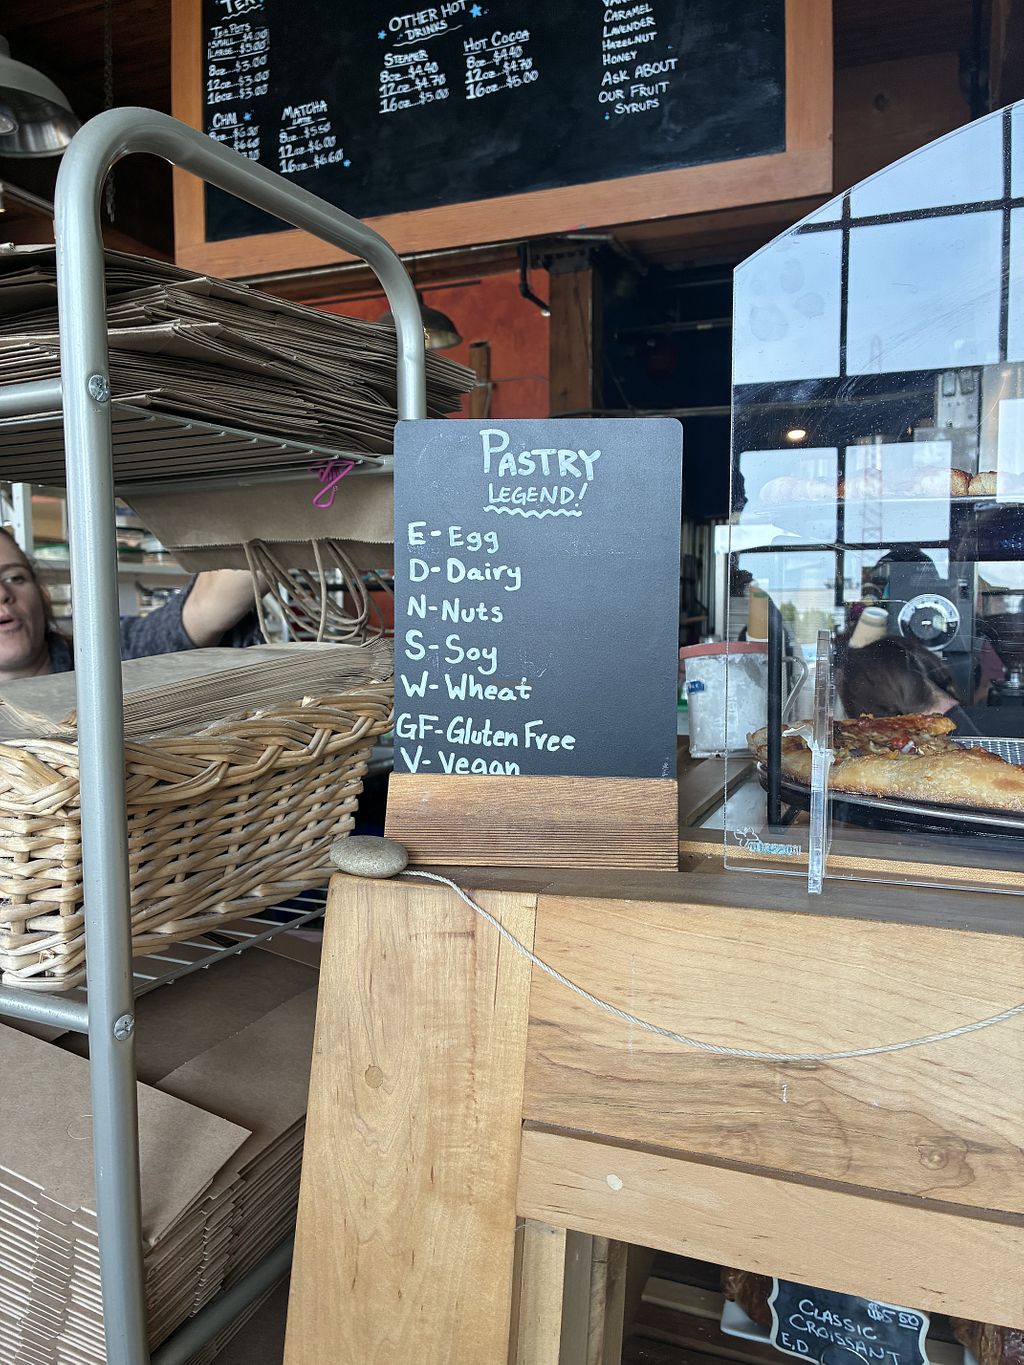 TEA
Tea Pots
Small $4.00
Large $5.00
8oz...$3.00
12oz...$3.00
16oz...$3.00
Chai
Matcha
8oz...$5.50
12oz...$6.00
16oz...$6.60
Other Hot
Drinks
Steamer
8oz...$4.40
12oz...$4.70
16oz...$5.00
Hot Cocoa
8oz...$4.40
12oz...$4.70
16oz...$6.00
Caramel
Lavender
Hazelnut
Honey
Ask About
Our Fruit
Syrups
Pastry
Legend!
E-Egg
D-Dairy
N-Nuts
S-Soy
W-Wheat
GF-Gluten Free
V-Vegan
Classic $5.50
Croissant
E,D